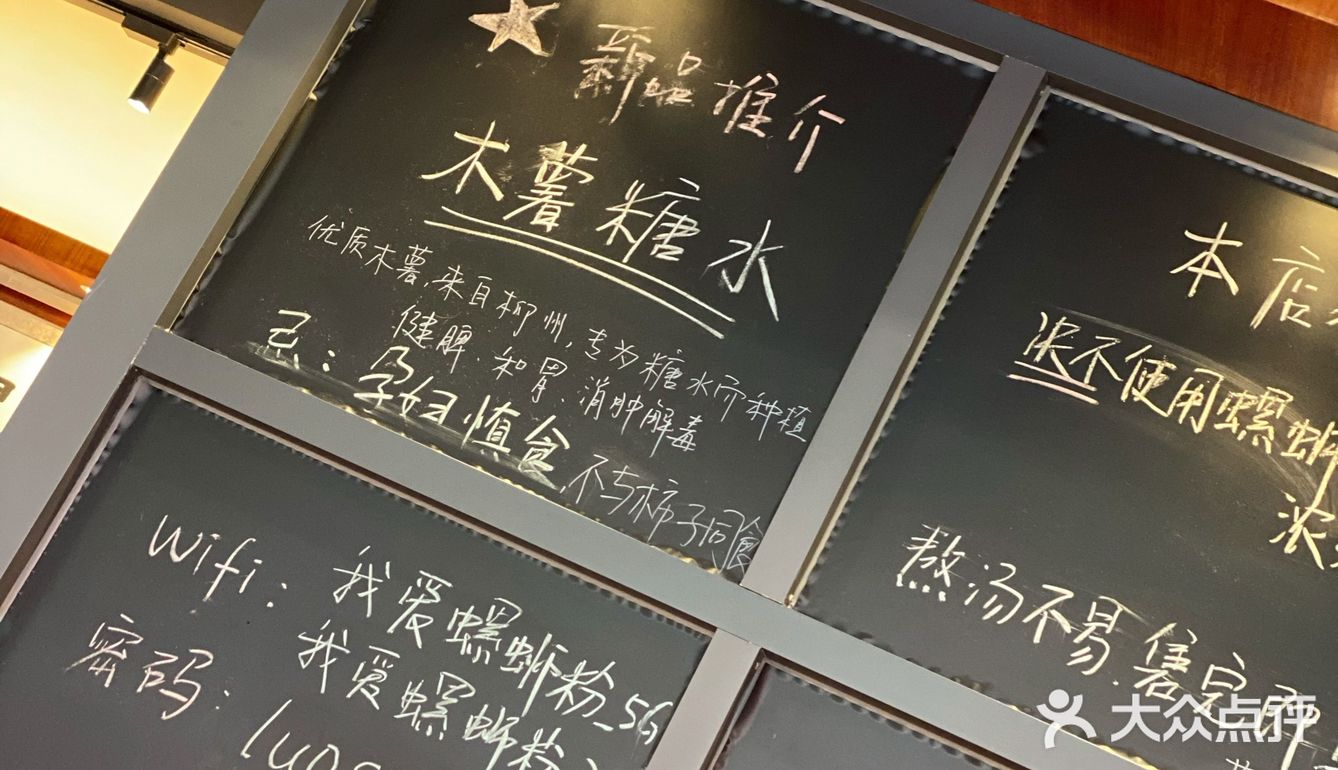 新品推介
木薯糖水
优质木薯,来自柳州,专为糖水而种植
健脾、和胃、消肿解毒
忌:孕妇慎食,不与柿子同食
本店
决不使用螺蛳
浓
熬汤不易,售完
wifi:我爱螺蛳粉_5G
我爱螺蛳粉
密码:luo
大众点评